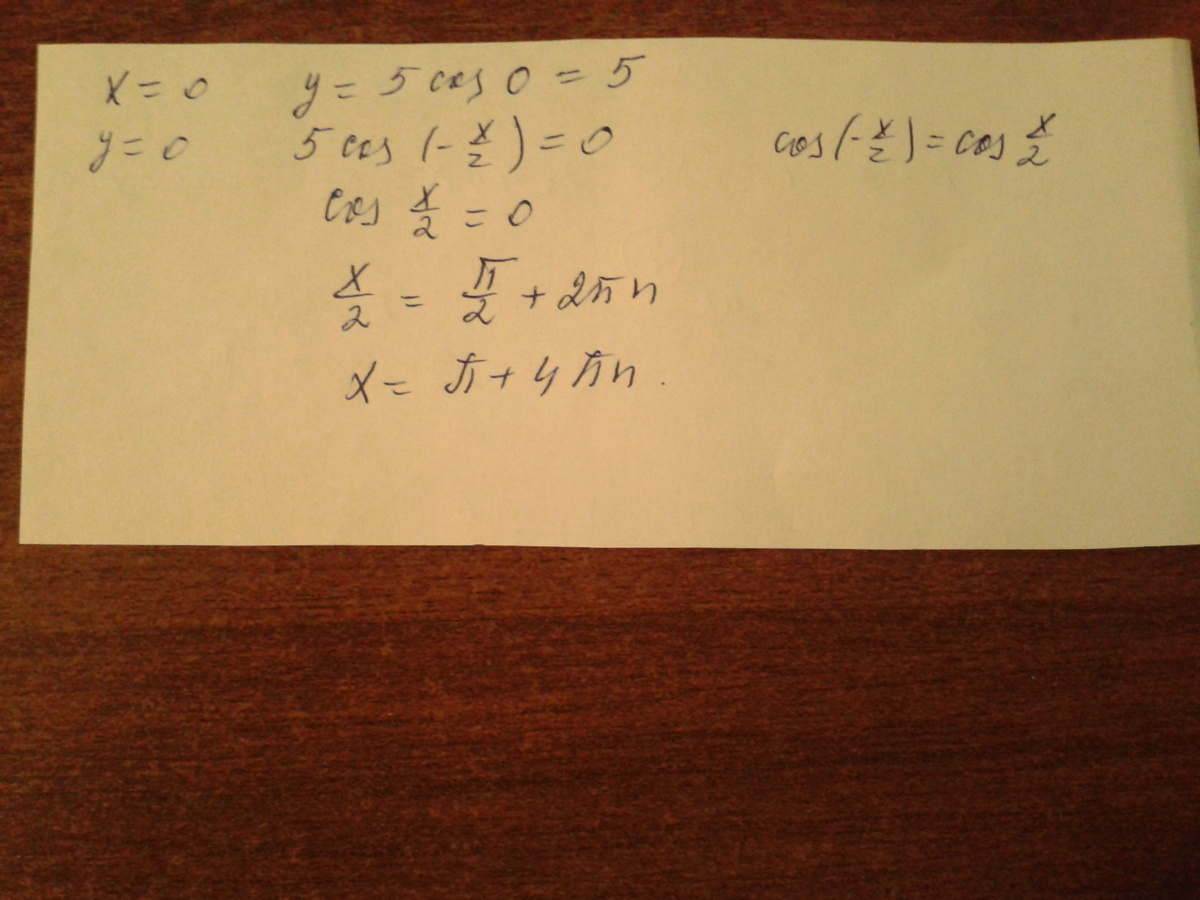 x = 0 y = 5 cos 0 = 5
y = 0 5 cos (- x/2) = 0 cos(- x/2) = cos x/2
cos x/2 = 0
x/2 = π/2 + 2πn
x = π + 4πn.